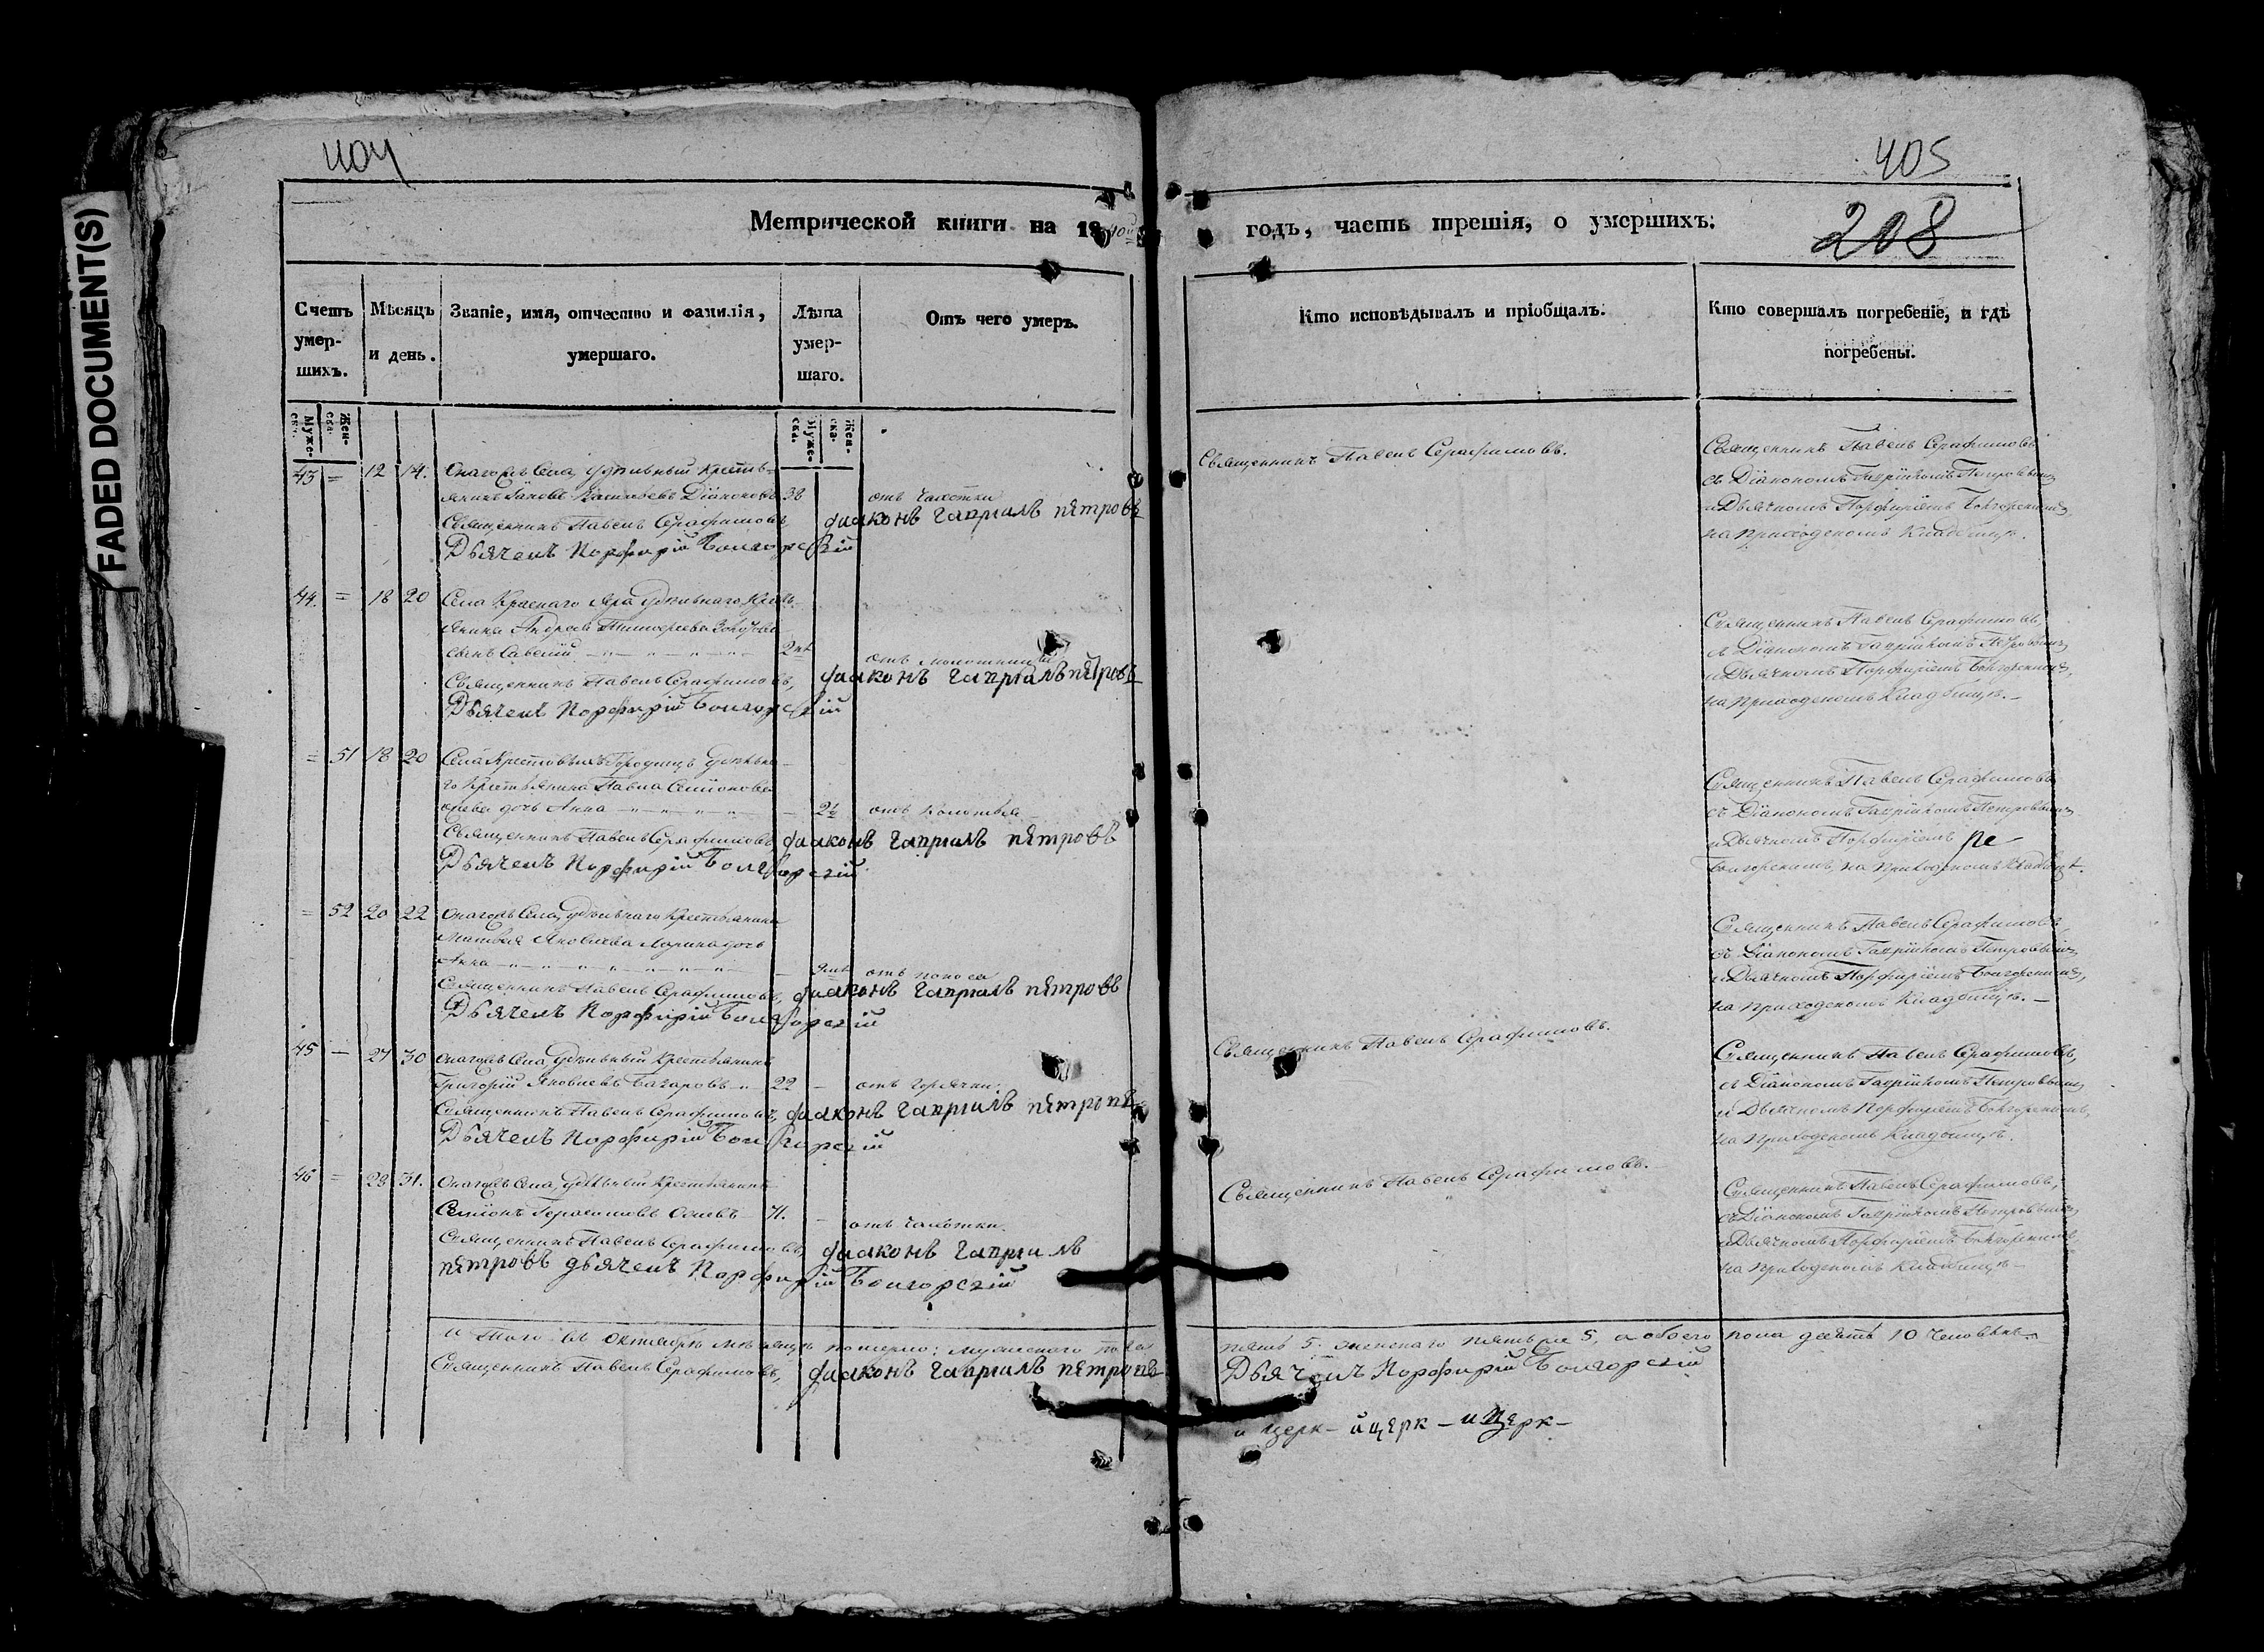 FADED DOCUMENT(S)
404
Метрической книги на 1840
Счетъ умер-шихъ.
Мѣсяцъ и день.
Званіе, имя, отчество и фамилія, умершаго.
Лѣта умер-шаго.
Отъ чего умеръ.
Муже-ска. Жен-ска.
Муже-ска. Жен-ска.
43 = 12 14. Онагожъ Села, удѣльный кресть-
янинъ Васильевъ Діяконовъ 38 отъ чахотки
Священникъ Павелъ Серафимовъ, діаконъ Гавріилъ Петровъ
Дьячекъ Порфирій Болгорскій
44. = 18 20 Села Краснаго Яра удѣльнаго кресть-
янина Андрея Тимофеева
сынъ Савелій 2
Священникъ Павелъ Серафимовъ, діаконъ Гавріилъ Петровъ
Дьячекъ Порфирій Болгорскій
= 51 18 20 Села Крестовыхъ Городищъ удѣльна-
го крестьянина Павла Семіонова
дочь Анна 2
Священникъ Павелъ Серафимовъ, діаконъ Гавріилъ Петровъ
Дьячекъ Порфирій Болгорскій
= 52 20 22 Онагожъ Села, удѣльнаго крестьянина
Матвея Яковлева Ларина дочь
Анна отъ поноса
Священникъ Павелъ Серафимовъ, діаконъ Гавріилъ Петровъ
Дьячекъ Порфирій Болгорскій
45 — 27 30 Онагожъ Села удѣльный крестьянинъ
Григорій Яковлевъ Захаровъ 22 — отъ горячки.
Священникъ Павелъ Серафимовъ, діаконъ Гавріилъ Петровъ
Дьячекъ Порфирій Болгорскій
46 = 29 31. Онагожъ Села, удѣльный крестьянинъ
Семіонъ Герасимовъ 71. — отъ чахотки.
Священникъ Павелъ Серафимовъ, діаконъ Гавріилъ
Петровъ дьячекъ Порфирій Болгорскій
Итого въ октябрѣ мѣсяцѣ померло: мужескаго пола
Священникъ Павелъ Серафимовъ, діаконъ Гавріилъ Петровъ
405
годъ, часть третія, о умершихъ:
208
Кто исповѣдывалъ и пріобщалъ.
Кто совершалъ погребеніе, и гдѣ погребены.
Священникъ Павелъ Серафимовъ.
Священникъ Павелъ Серафимовъ
съ Діякономъ Гавріиломъ Петровымъ
и Дьячкомъ Порфиріемъ Болгорскимъ,
на приходскомъ кладбищѣ.
Священникъ Павелъ Серафимовъ,
съ Діякономъ Гавріиломъ Петровымъ
и Дьячкомъ Порфиріемъ Болгорскимъ,
на приходскомъ кладбищѣ.
Священникъ Павелъ Серафимовъ
съ Діякономъ Гавріиломъ Петровымъ
и Дьячкомъ Порфиріемъ
Болгорскимъ, на приходскомъ кладбищѣ.
Священникъ Павелъ Серафимовъ,
съ Діякономъ Гавріиломъ Петровымъ
и Дьячкомъ Порфиріемъ Болгорскимъ,
на приходскомъ кладбищѣ.
Священникъ Павелъ Серафимовъ.
Священникъ Павелъ Серафимовъ,
съ Діякономъ Гавріиломъ Петровымъ
и Дьячкомъ Порфиріемъ Болгорскимъ,
на приходскомъ кладбищѣ.
Священникъ Павелъ Серафимовъ.
Священникъ Павелъ Серафимовъ,
съ Діякономъ Гавріиломъ Петровымъ
и Дьячкомъ Порфиріемъ Болгорскимъ
на приходскомъ кладбищѣ
пять 5. женскаго пять 5, а обоего пола десять 10 человѣкъ
Дьячекъ Порфирій Болгорскій
и церк — и церк — и церк —